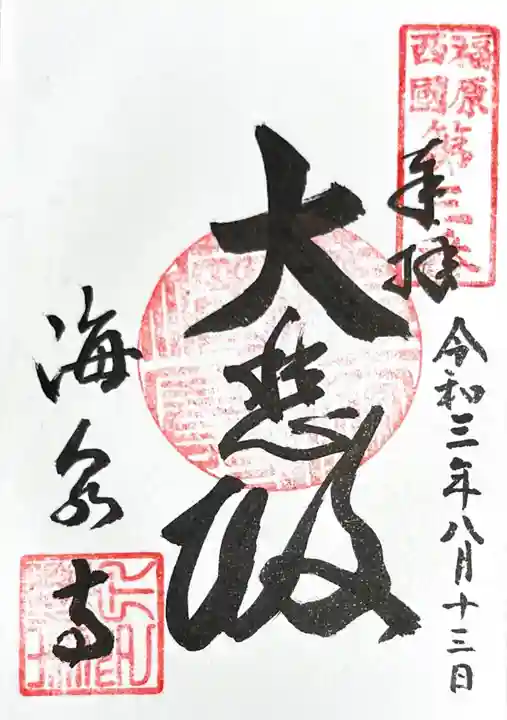 福原
西國
第三番
奉拝
令和三年八月十三日
大悲殿
海泉寺